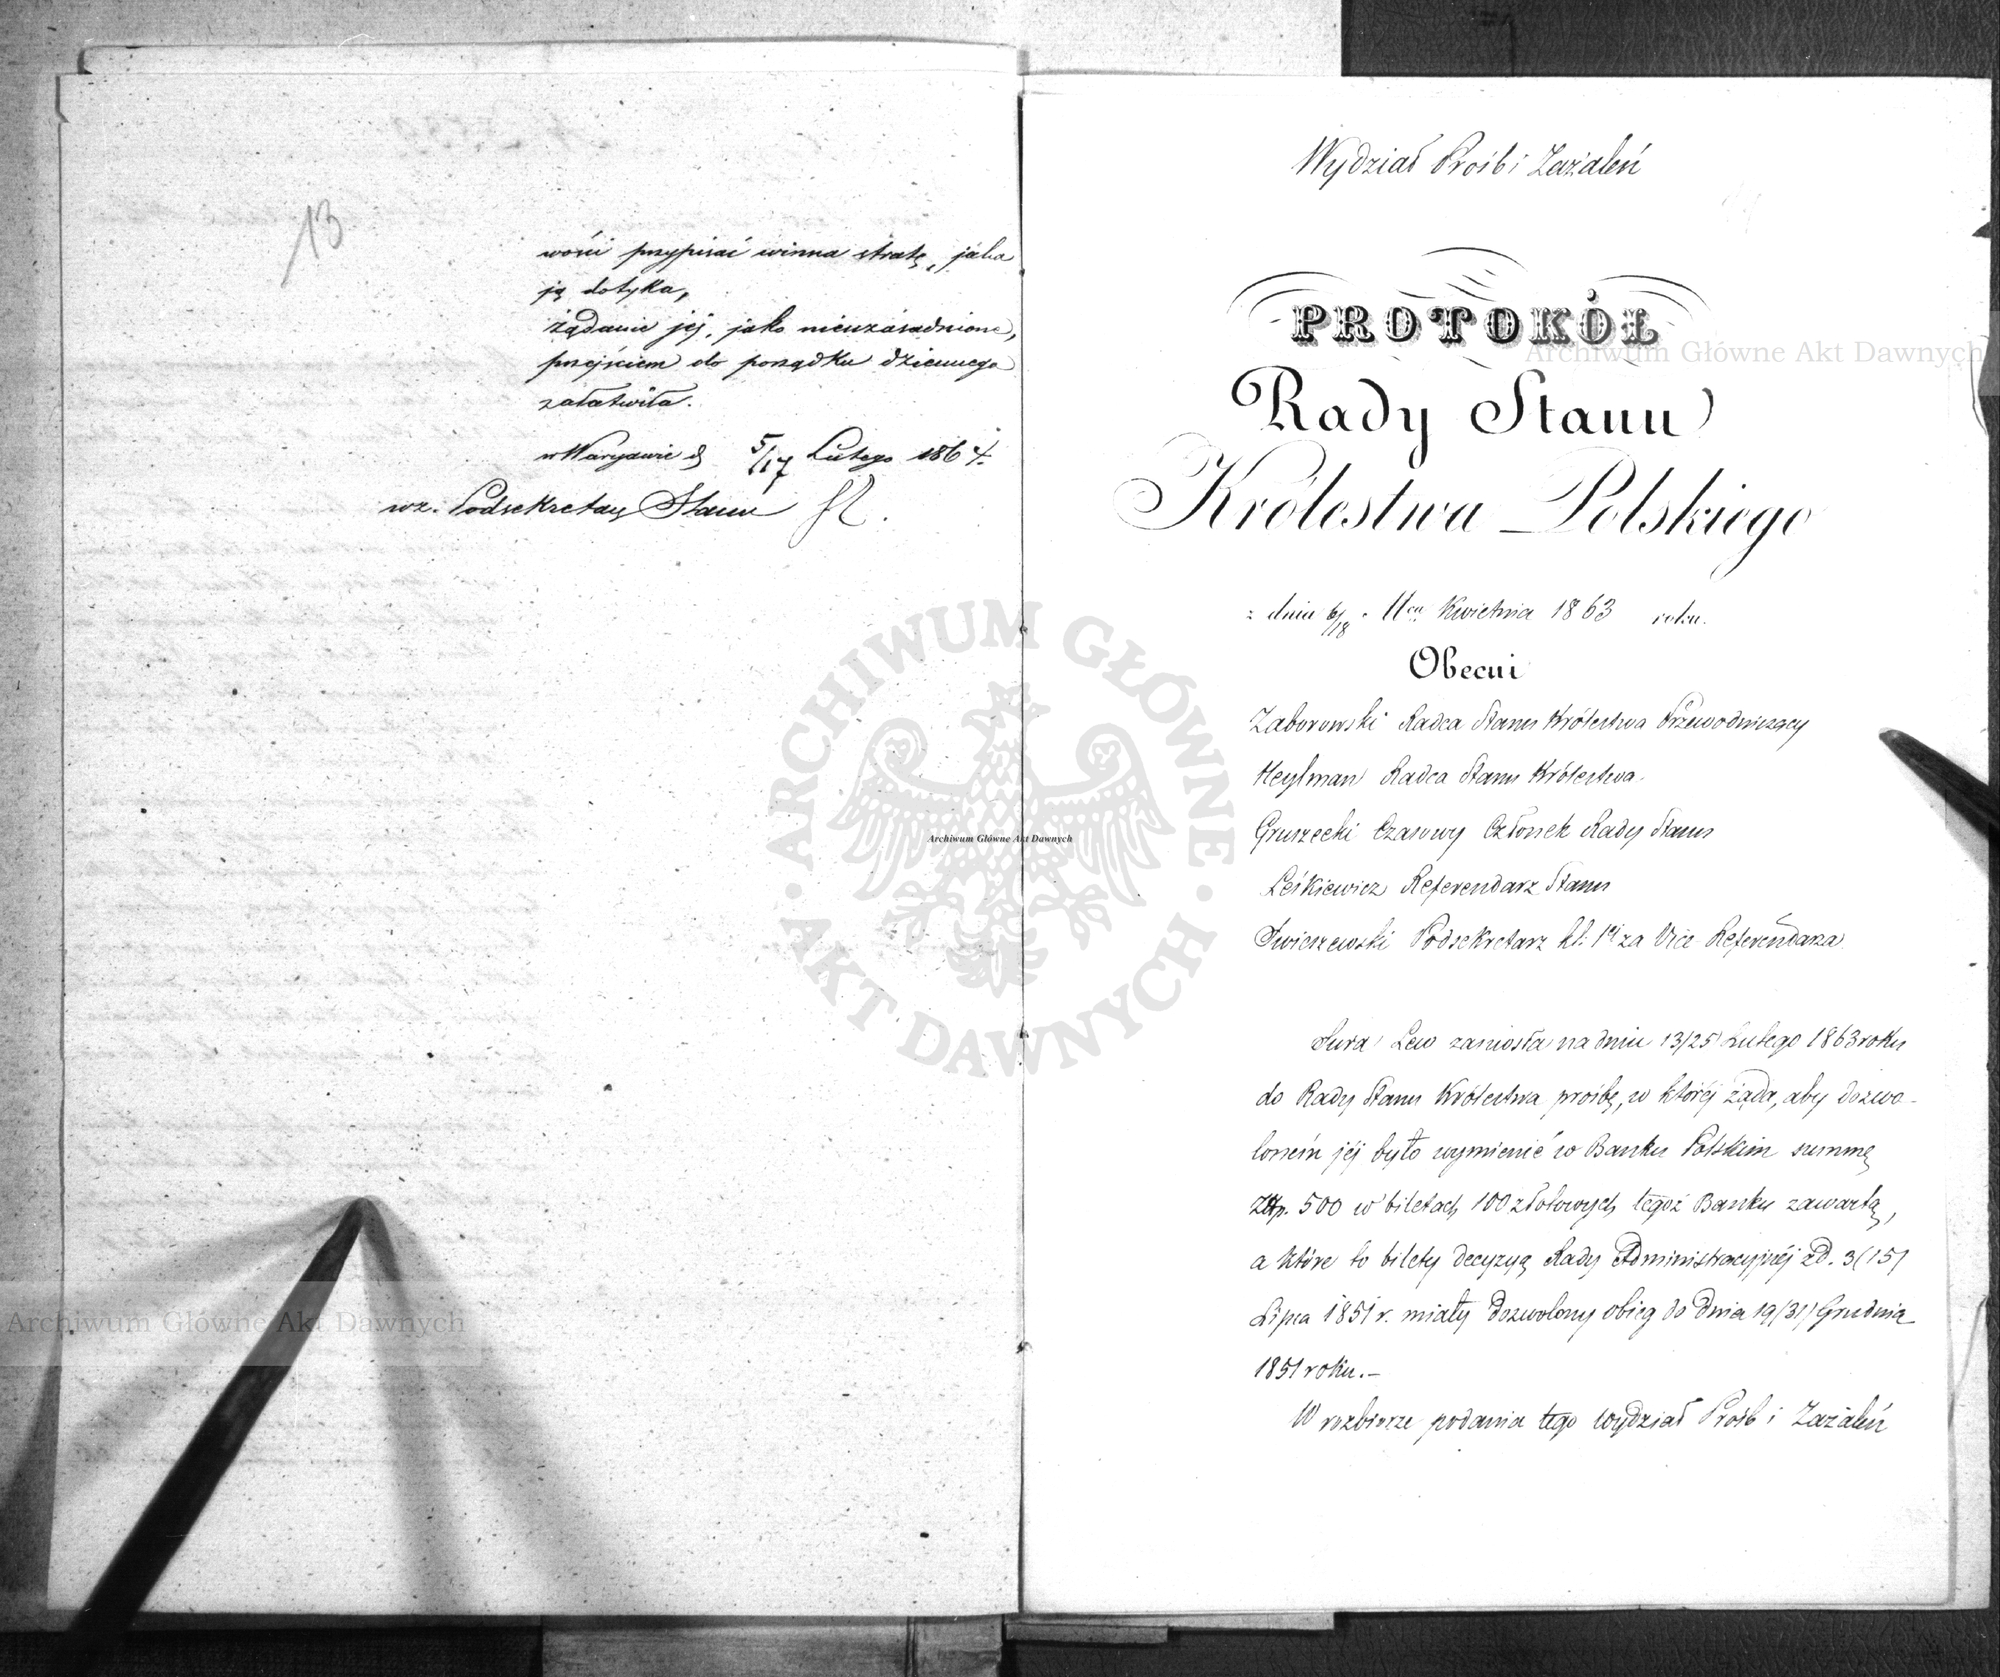 13
wości przypisać winna stratę, jaka
ją dotyka,
żądanie jej, jako nieuzasadnione,
przejściem do porządku dziennego
załatwiła.
w Warszawie d. 5/17 Lutego 1864.
wz. Podsekretarz Stanu
Wydział Próśb i Zażaleń
PROTOKÓŁ
Rady Stanu
Królestwa Polskiego
z dnia 6/18 Kwietnia 1863 roku.
Obecni
Zaborowski Radca Stanu Królestwa Przewodniczący
Heylman Radca Stanu Królestwa.
Gruszecki Czasowy Członek Rady Stanu
Leśkiewicz Referendarz Stanu
Podsekretarz kl: 1éj za Vice-Referendarza
Sura Lew zaniosła na dniu 13/25 Lutego 1863 roku
do Rady Stanu Królestwa prośbę, w któréj żąda, aby dozwo-
loném jéj było wymienić w Banku Polskim summę
Złp. 500 w biletach 100 złotowych tegoż Banku zawartą,
a które to bilety decyzyą Rady Administracyjnéj z d. 3(15)
Lipca 1851 r. miały dozwolony obieg do dnia 19(31) Grudnia
1851 roku.–
W rozbiorze podania tego Wydział Próśb i Zażaleń
Archiwum Główne Akt Dawnych
ARCHIWUM GŁÓWNE AKT DAWNYCH
Archiwum Główne Akt Dawnych
Archiwum Główne Akt Dawnych